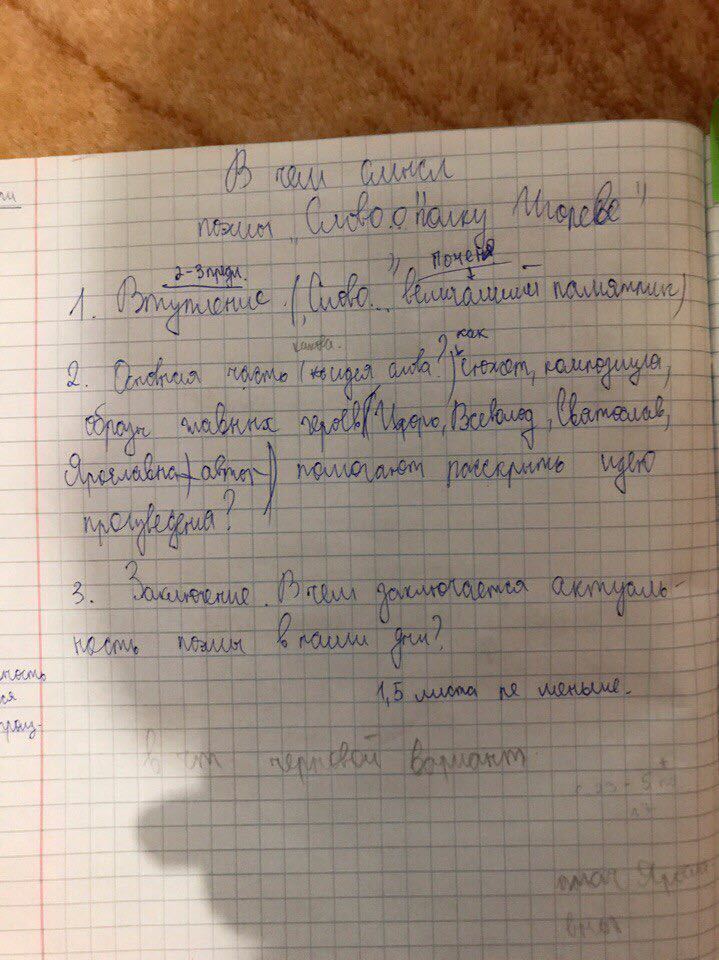 ти
В чем смысл
поэмы „Слово о "полку Игореве"
2-3 предл.
Почему
1. Вступление. („Слово..." величайший памятник)
какова
как
2. Основная часть (идея слова?) Сюжет, композиция,
образы главных героев (Игорь, Всеволод, Святослав,
Ярославна, автор) помогают расскрыть идею
произведения?
3. Заключение. В чем заключается актуаль-
ность поэмы в наши дни?
ность
ся
произ-
1,5 листа не меньше.
в чт. черновой вариант.
плач